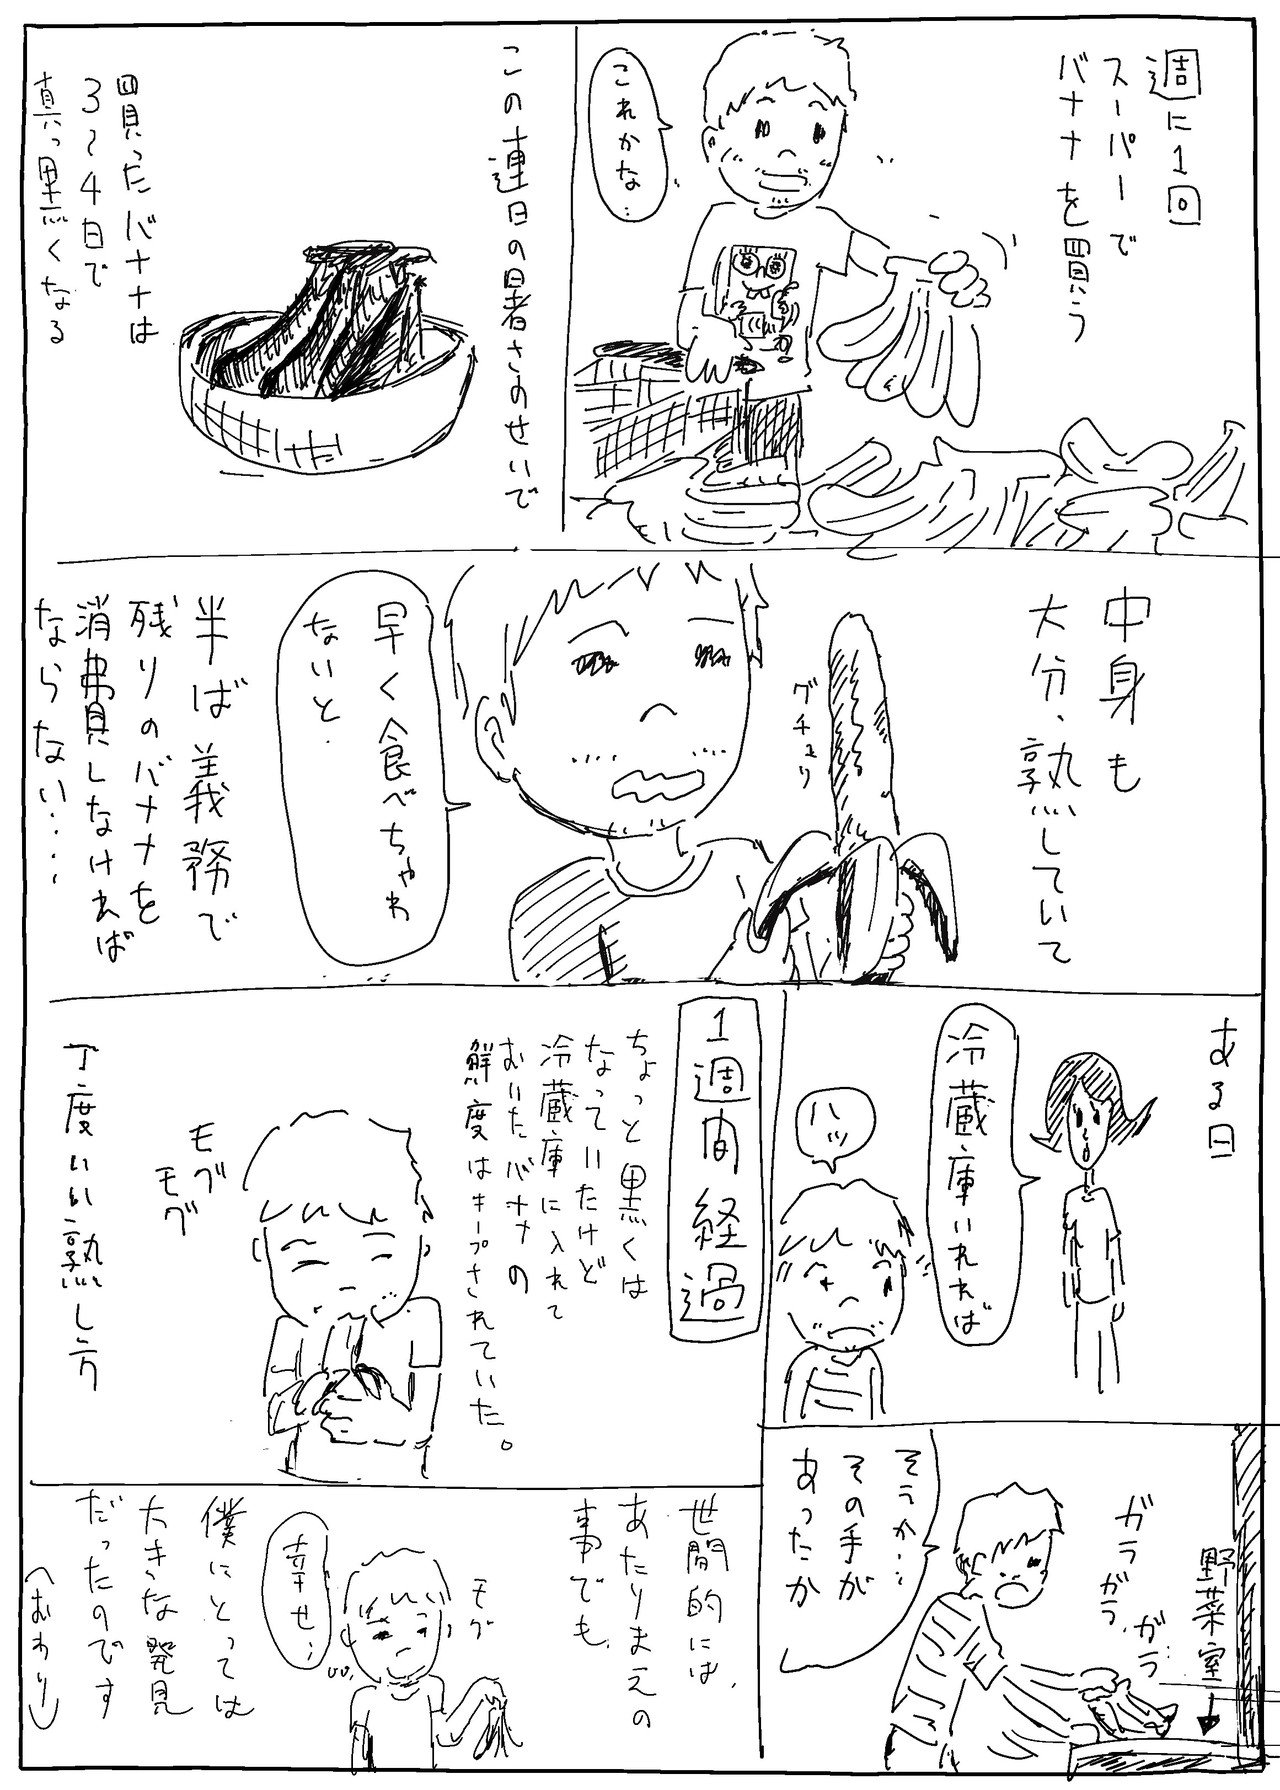 週に1回
スーパーで
バナナを買う
これかな…
この連日の暑さのせいで
買ったバナナは
3〜4日で
真っ黒くなる
中身も
大分、熟していて
グチュリ
早く食べちゃわ
ないと.
半ば義務で
残りのバナナを
消費しなければ
ならない….
ある日
冷蔵庫いれれば
ハッ
そうか…
その手が
あったか
ガラガラ
ガラ
野菜室
1週間経過
ちょっと黒くは
なっていたけど
冷蔵庫に入れて
おいたバナナの
鮮度はキープされていた。
モグ
モグ
丁度いい熟し方
世間的には、
あたりまえの
事でも、
モグ
幸せ…
僕にとっては
大きな発見
だったのです
(おわり)